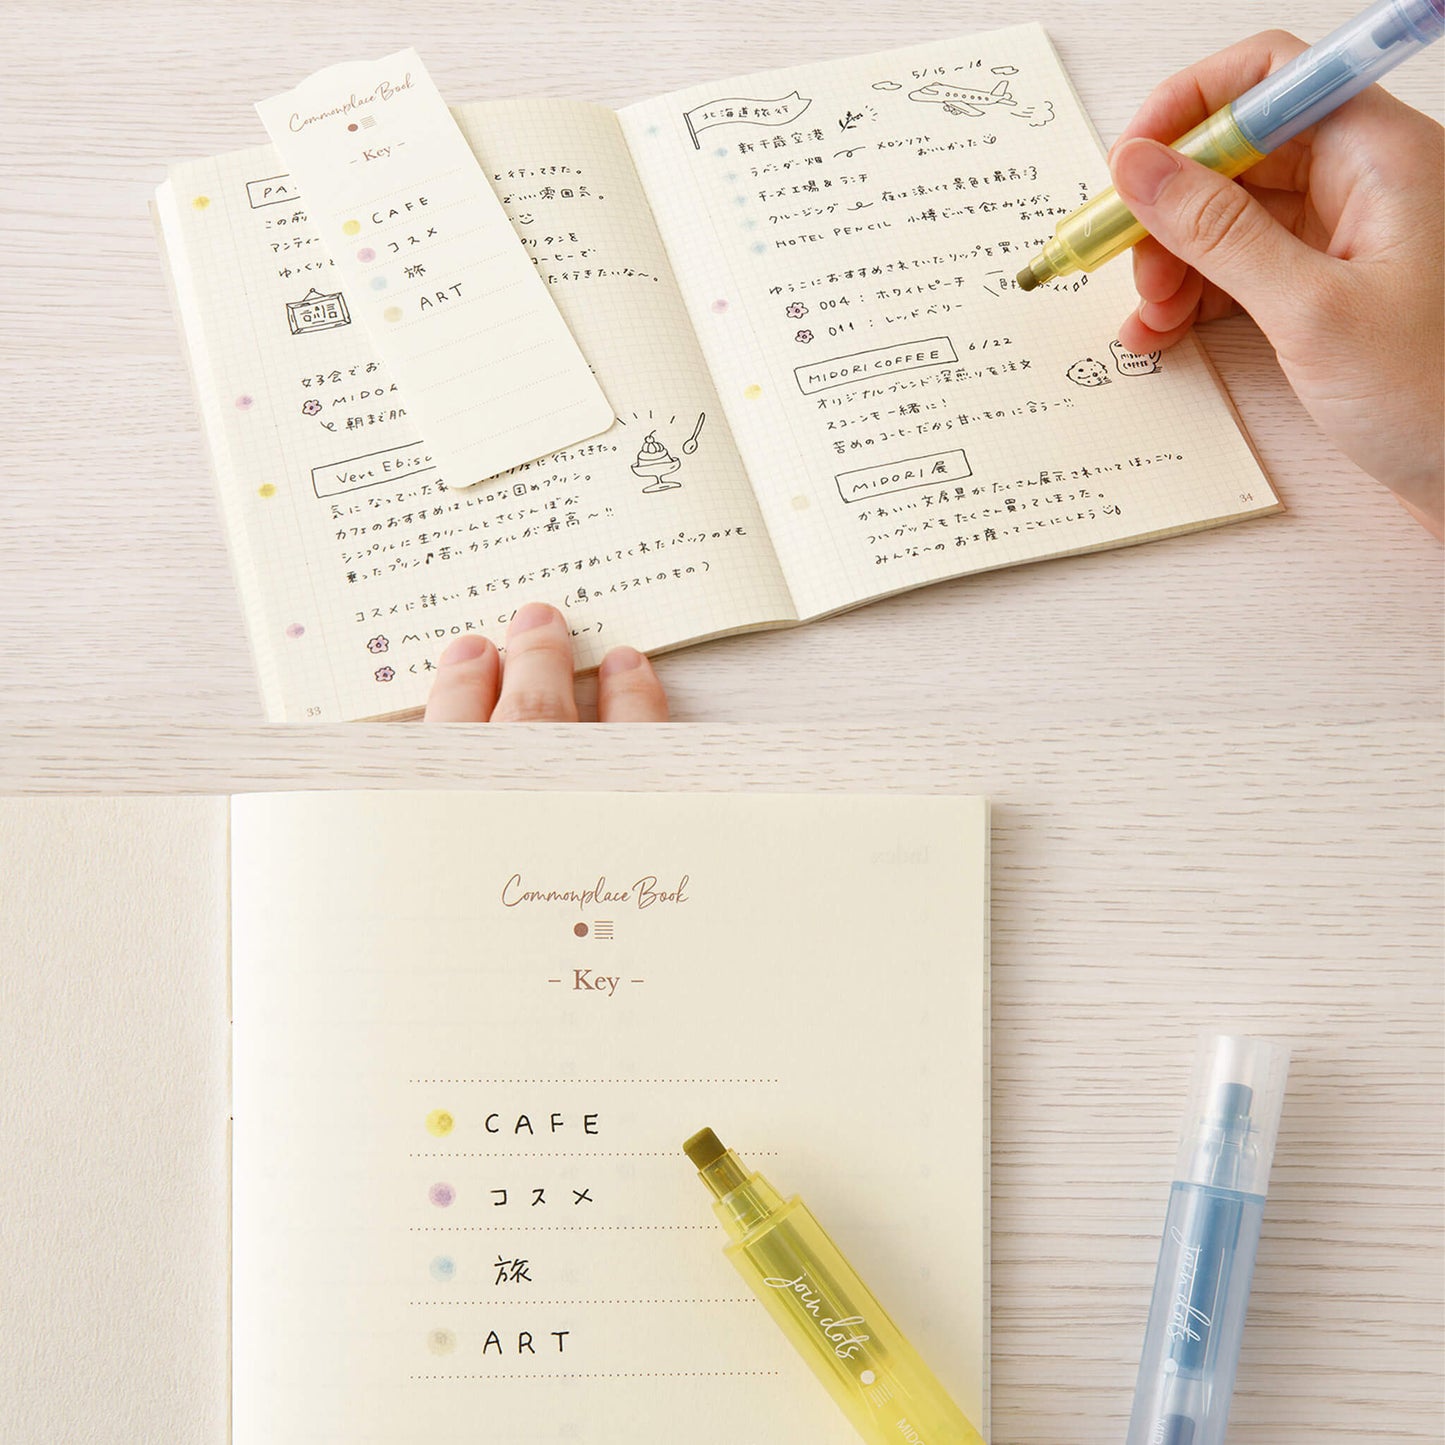 Commonplace Book
- Key -
CAFE
コスメ
旅
ART
と行ってきた。
でいい雰囲気。
この前
アンティー
ゆっくりて
コーヒーで
た行きたいな〜。
女子会でお
MIDO
朝まで肌
Vert Ebisu
カフェに行ってきた。
気になっていた
カフェのおすすめはレトロな固めプリン。
シンプルに生クリームとさくらんぼが
乗ったプリン♪苦いカラメルが最高〜!!
コスメに詳しい友だちがおすすめしてくれたパックのメモ
MIDORI
(鳥のイラストのもの)
33
北海道旅行
5/15〜18
新千歳空港
ラベンダー畑
メロンソフト
おいしかった
チーズ工場&ランチ
クルージング
夜は涼しくて景色も最高
HOTEL PENCIL
小樽ビールを飲みながら
おやすみ
ゆうこにおすすめされていたリップを買ってみた
004:ホワイトピーチ
011:レッドベリー
MIDORI COFFEE
6/22
オリジナルブレンド深煎りを注文
スコーンも一緒に!
苦めのコーヒーだから甘いものに合うー!!
MIDORI COFFEE
MIDORI展
かわいい文房具がたくさん展示されていてほっこり。
ついグッズもたくさん買ってしまった。
みんなへの お土産ってことにしよう
34
Commonplace Book
- Key -
CAFE
コスメ
旅
ART
join dots
MIDO
join dots
MIDO